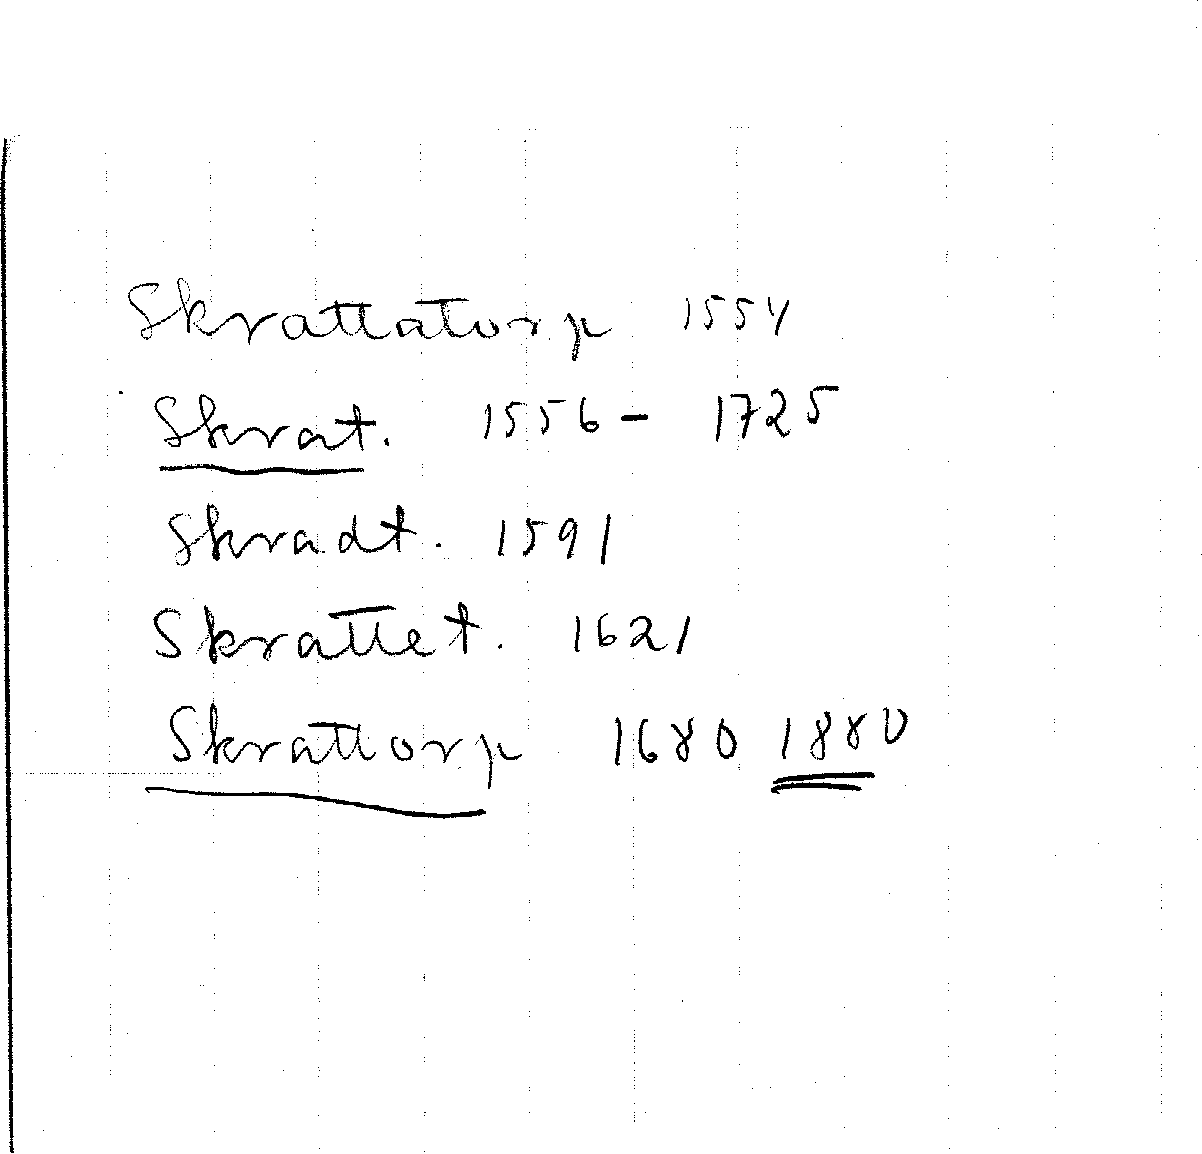 Skrattatorp 1554
Skrat. 1556 - 1725
Skradt. 1591
Skrattet. 1621
Skrattorp 1680 1880